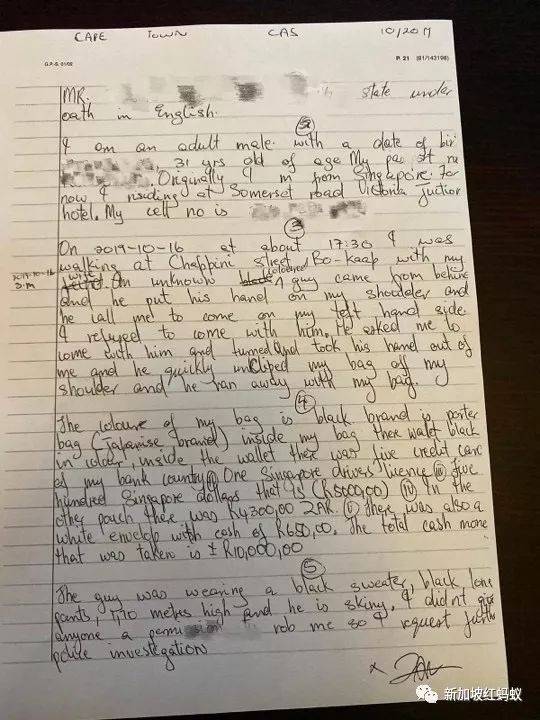 CAPE TOWN CAS 10/2019
G.P.-S. 01/02 P. 21 (81/143198)
MR. state under
oath in English.
2
I am an adult male with a date of bir
31 yrs old of age My pas
Originally I m from Singapore. For
now I residing at Somerset road Victoria Juction
hotel. My cell no is
3
On 2019-10-16 at about 17:30 I was
walking at Chappini street, Bo-Kaap with my
2019-10-16 wife coloured
An unknown guy came from behind
and he put his hand on my shoulder and
he call me to come on my left hand side.
I refused to come with him. He asked me to
come with him and turned and took his hand out of
me and he quickly uncliped my bag off my
shoulder and he ran away with my bag.
4
The coloure of my bag is black brand is porter
bag (Japanise brand) inside my bag there walet black
in colour, inside the wallet there was five credit card
of my bank country (ii) One Singapore drivers licence (iii) five
hundred Singapore dollars that is (R5000,00) (iv) In the
other pouch there was R4300,00 ZAR. (v) There was also a
white envelop with cash of R650,00. The total cash mone
that was taken is ± R10,000,00
5
The guy was wearing a black sweater, black long
pants, 1,70 metres high and he is skiny. I didn't give
anyone a permi rob me so I request further
police investigation
x
新加坡红蚂蚁